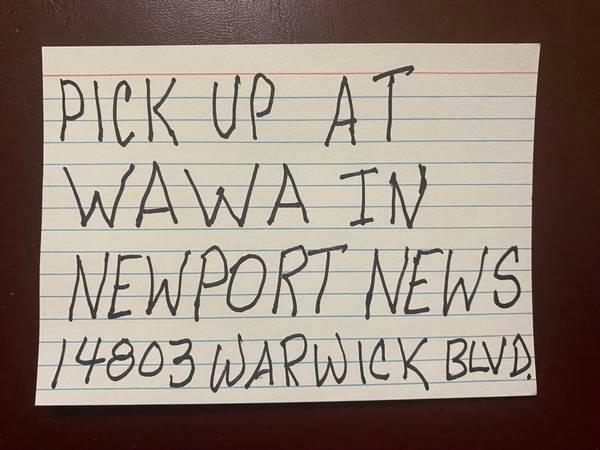 PICK UP AT
WAWA IN
NEWPORT NEWS
14803 WARWICK BLVD.